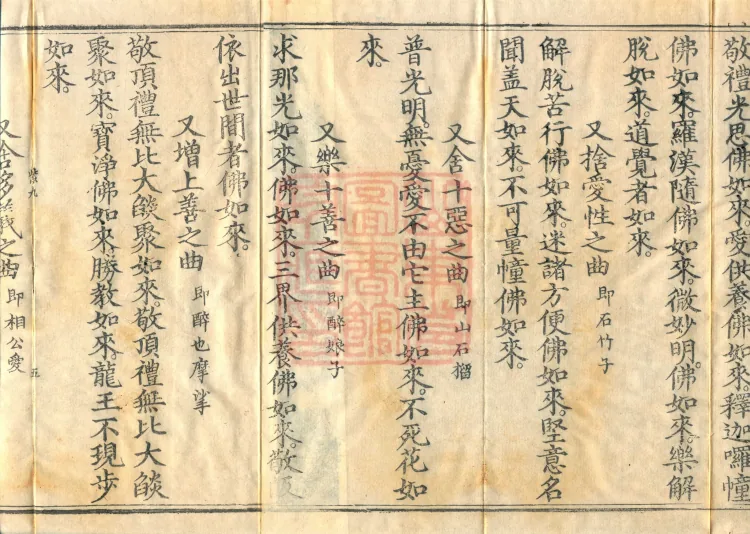 敬禮光思佛如來。愛供養佛如來。釋迦囉幢
佛如來。羅漢隨佛如來。微妙明。佛如來。樂解
脫如來。道覺者如來。
又捨愛性之曲 即石竹子
解脫苦行佛如來。迷諸方便佛如來。堅意名
聞盖天如來。不可量幢佛如來。
又舍十惡之曲 即山石榴
普光明。無憂愛不由它主佛如來。不死花如
來。
又樂十善之曲 即醉娘子
求那光如來。佛如來。三界供養佛如來。敬
依出世間者佛如來。
又增上善之曲 即醉也摩挲
敬頂禮無比大燄聚如來。敬頂禮無比大燄
聚如來。寶淨佛如來。勝教如來。龍王不現步
如來。
紫九 五
又舍 之曲 即相公愛